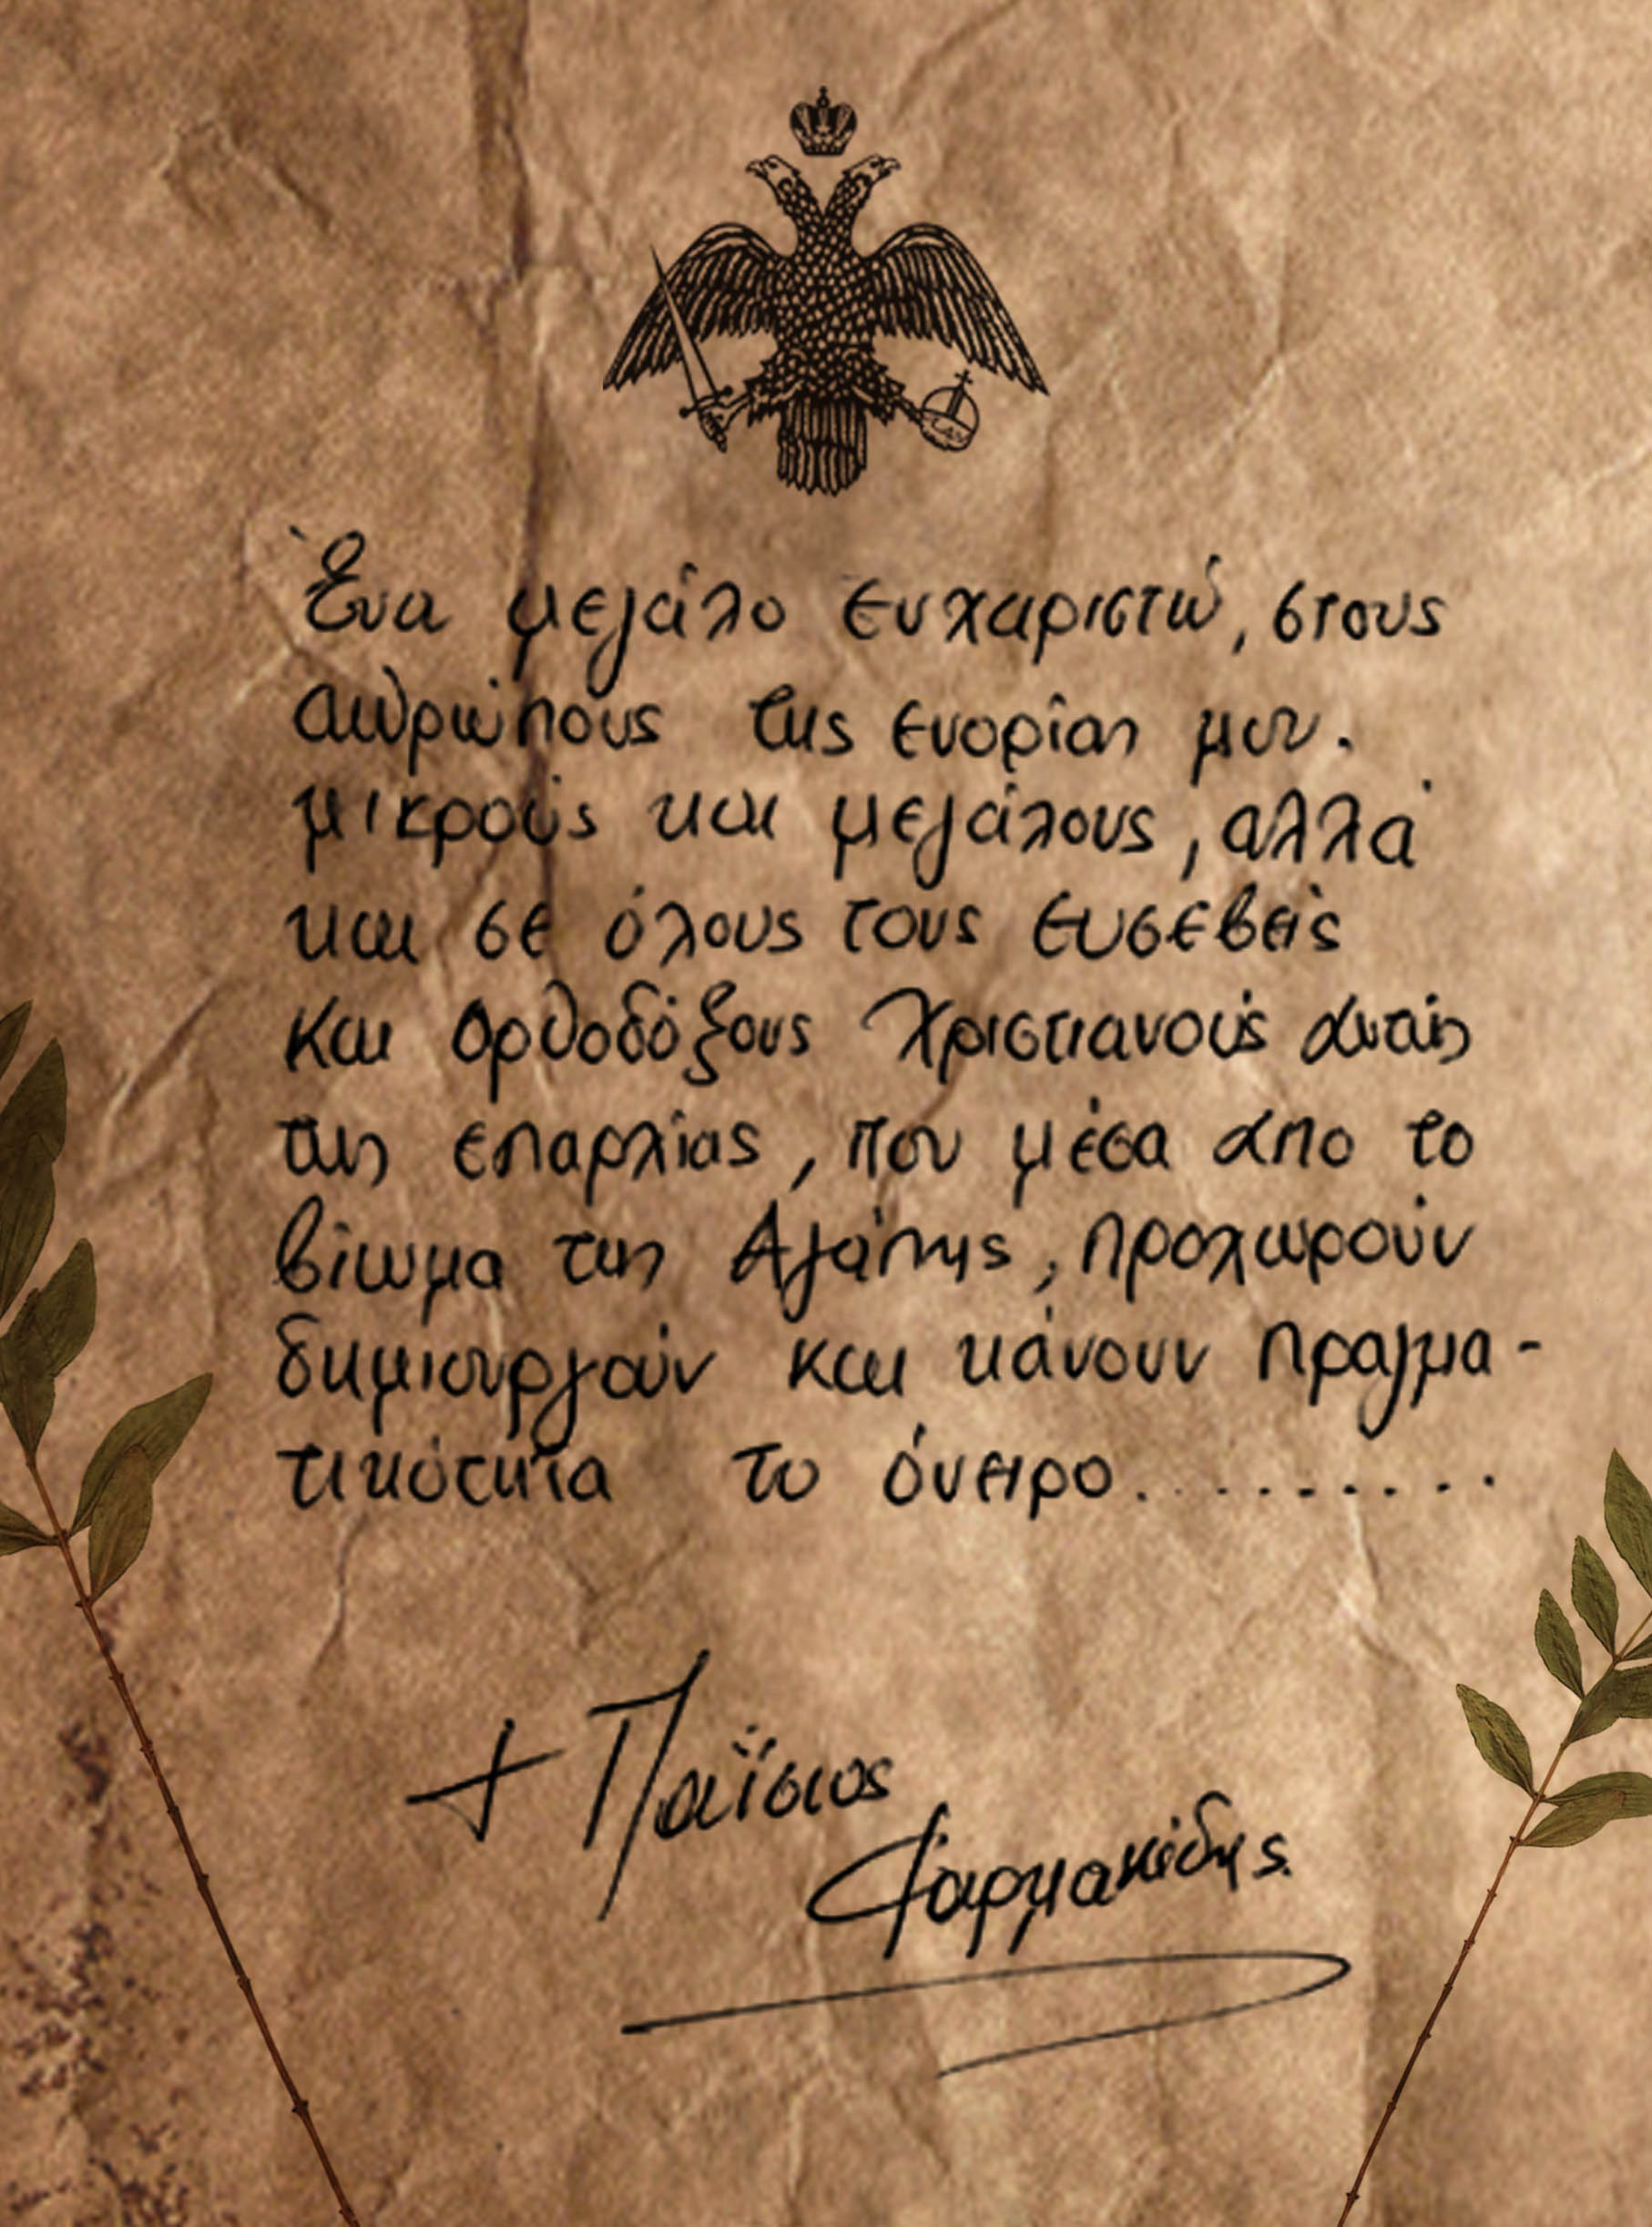 Ένα μεγάλο ευχαριστώ, στους
ανθρώπους της ενορίας μου.
μικρούς και μεγάλους, αλλά
και σε όλους τους ευσεβείς
και ορθοδόξους Χριστιανούς αυτής
της επαρχίας, που μέσα απο το
βίωμα της Αγάπης, προχωρούν
δημιουργούν και κάνουν πραγμα-
τικότητα το όνειρο..........
+ Παΐσιος
Φαρμακίδης.